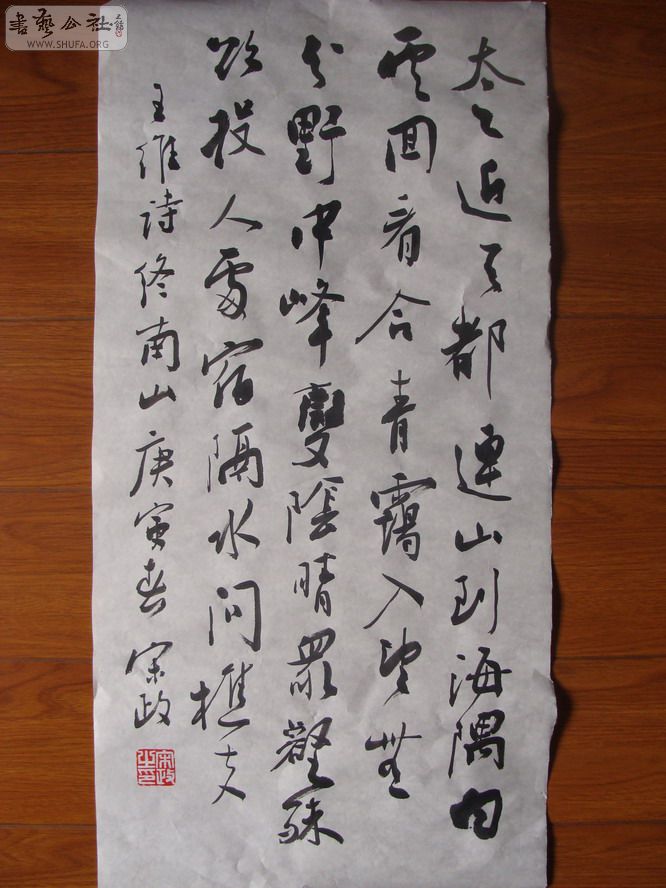 書藝公社
WWW.SHUFA.ORG
太乙近天都連山到海隅白
雲回看合青靄入望無
分野中峰變陰晴眾壑殊
欲投人處宿隔水問樵夫
王維詩終南山庚寅春宋政
宋政之印